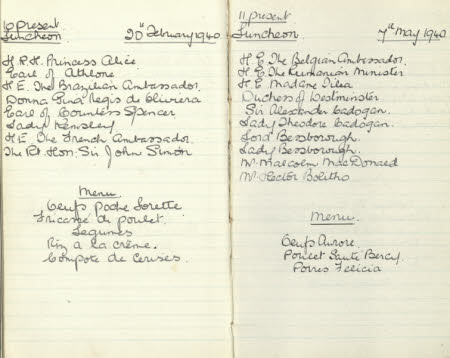 10 present
Luncheon 20th February 1940
H.R.H. Princess Alice
Earl of Athlone
H.E. The Brazilian Ambassador.
Donna Tina Regis de Oliviera
Earl & Countess Spencer
Lady Kemsley
H.E. The French Ambassador.
The Rt. Hon. Sir John Simon
Menu
Oeufs Poche Lorette
Fricassé du poulet.
Legumes
Riz a la crème.
Compote de Cerises.
11 present
Luncheon 7th May 1940
H.E. The Belgian Ambassador.
H.E. The Rumanian Minister
H.E. Madame Tilea
Duchess of Westminster
Sir Alexander Cadogan.
Lady Theodore Cadogan.
Lord Bessborough.
Lady Bessborough.
Mr Malcolm MacDonald
Mr Hector Bolitho
Menu.
Oeufs Aurore
Poulet Sauté Bercy.
Poires Felicia